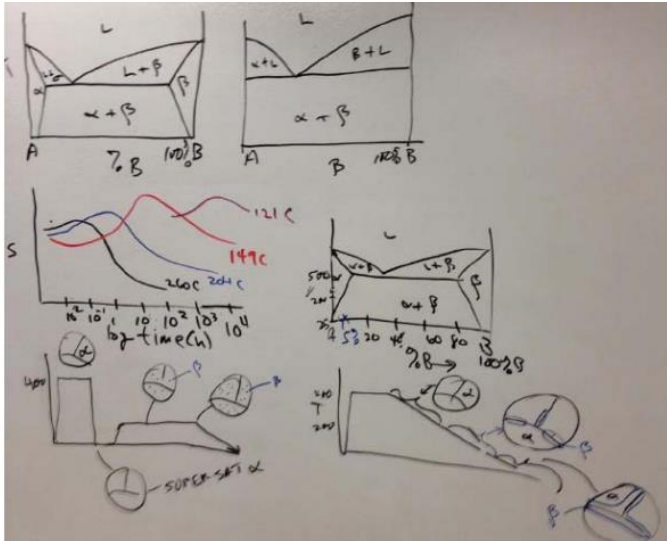 L
L
L+β
β
α
α+L
B+L
α+β
α+β
A
%B
100% B
A
B
100% B
S
121C
149C
260C
204C
10⁻² 10⁻¹ 1 10 10² 10³ 10⁴
log time(h)
L
α+β
L+β
β
α+β
500
200
A
5%
20
40
60
80
B
%B→
100%B
400
α
β
SUPER SAT α
T
200
α
α
β
β
α